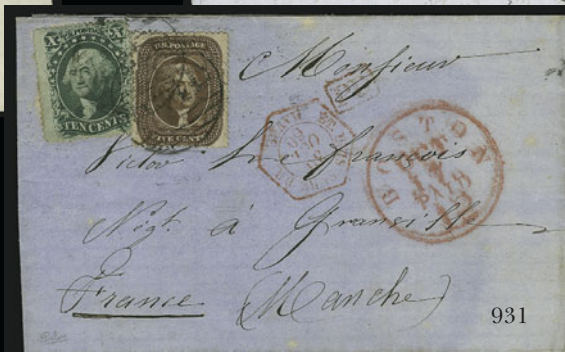 U.S. POSTAGE
X X
TEN CENTS
U.S. POSTAGE
FIVE CENTS
Monsieur
Victor Le francois
Négt. à Granville
France (Manche)
BOSTON
PAID
931